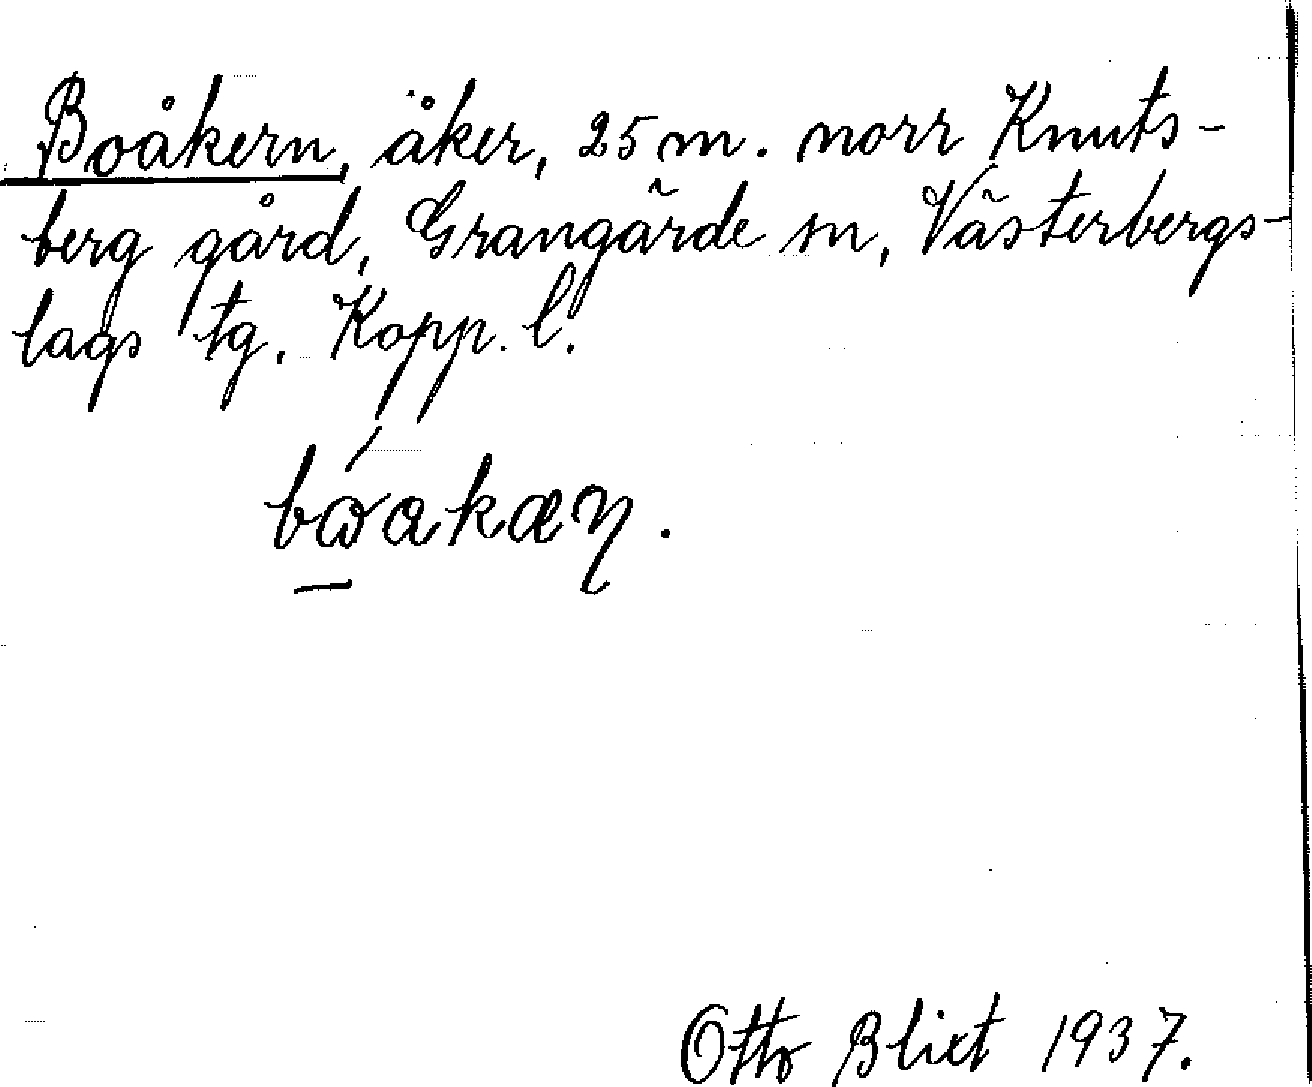 Boåkern, åker, 25 m. norr Knuts-
berg gård, Grangärde sn, Västerbergs-
lags tg. Kopp. l.
Otto Blixt 1937.